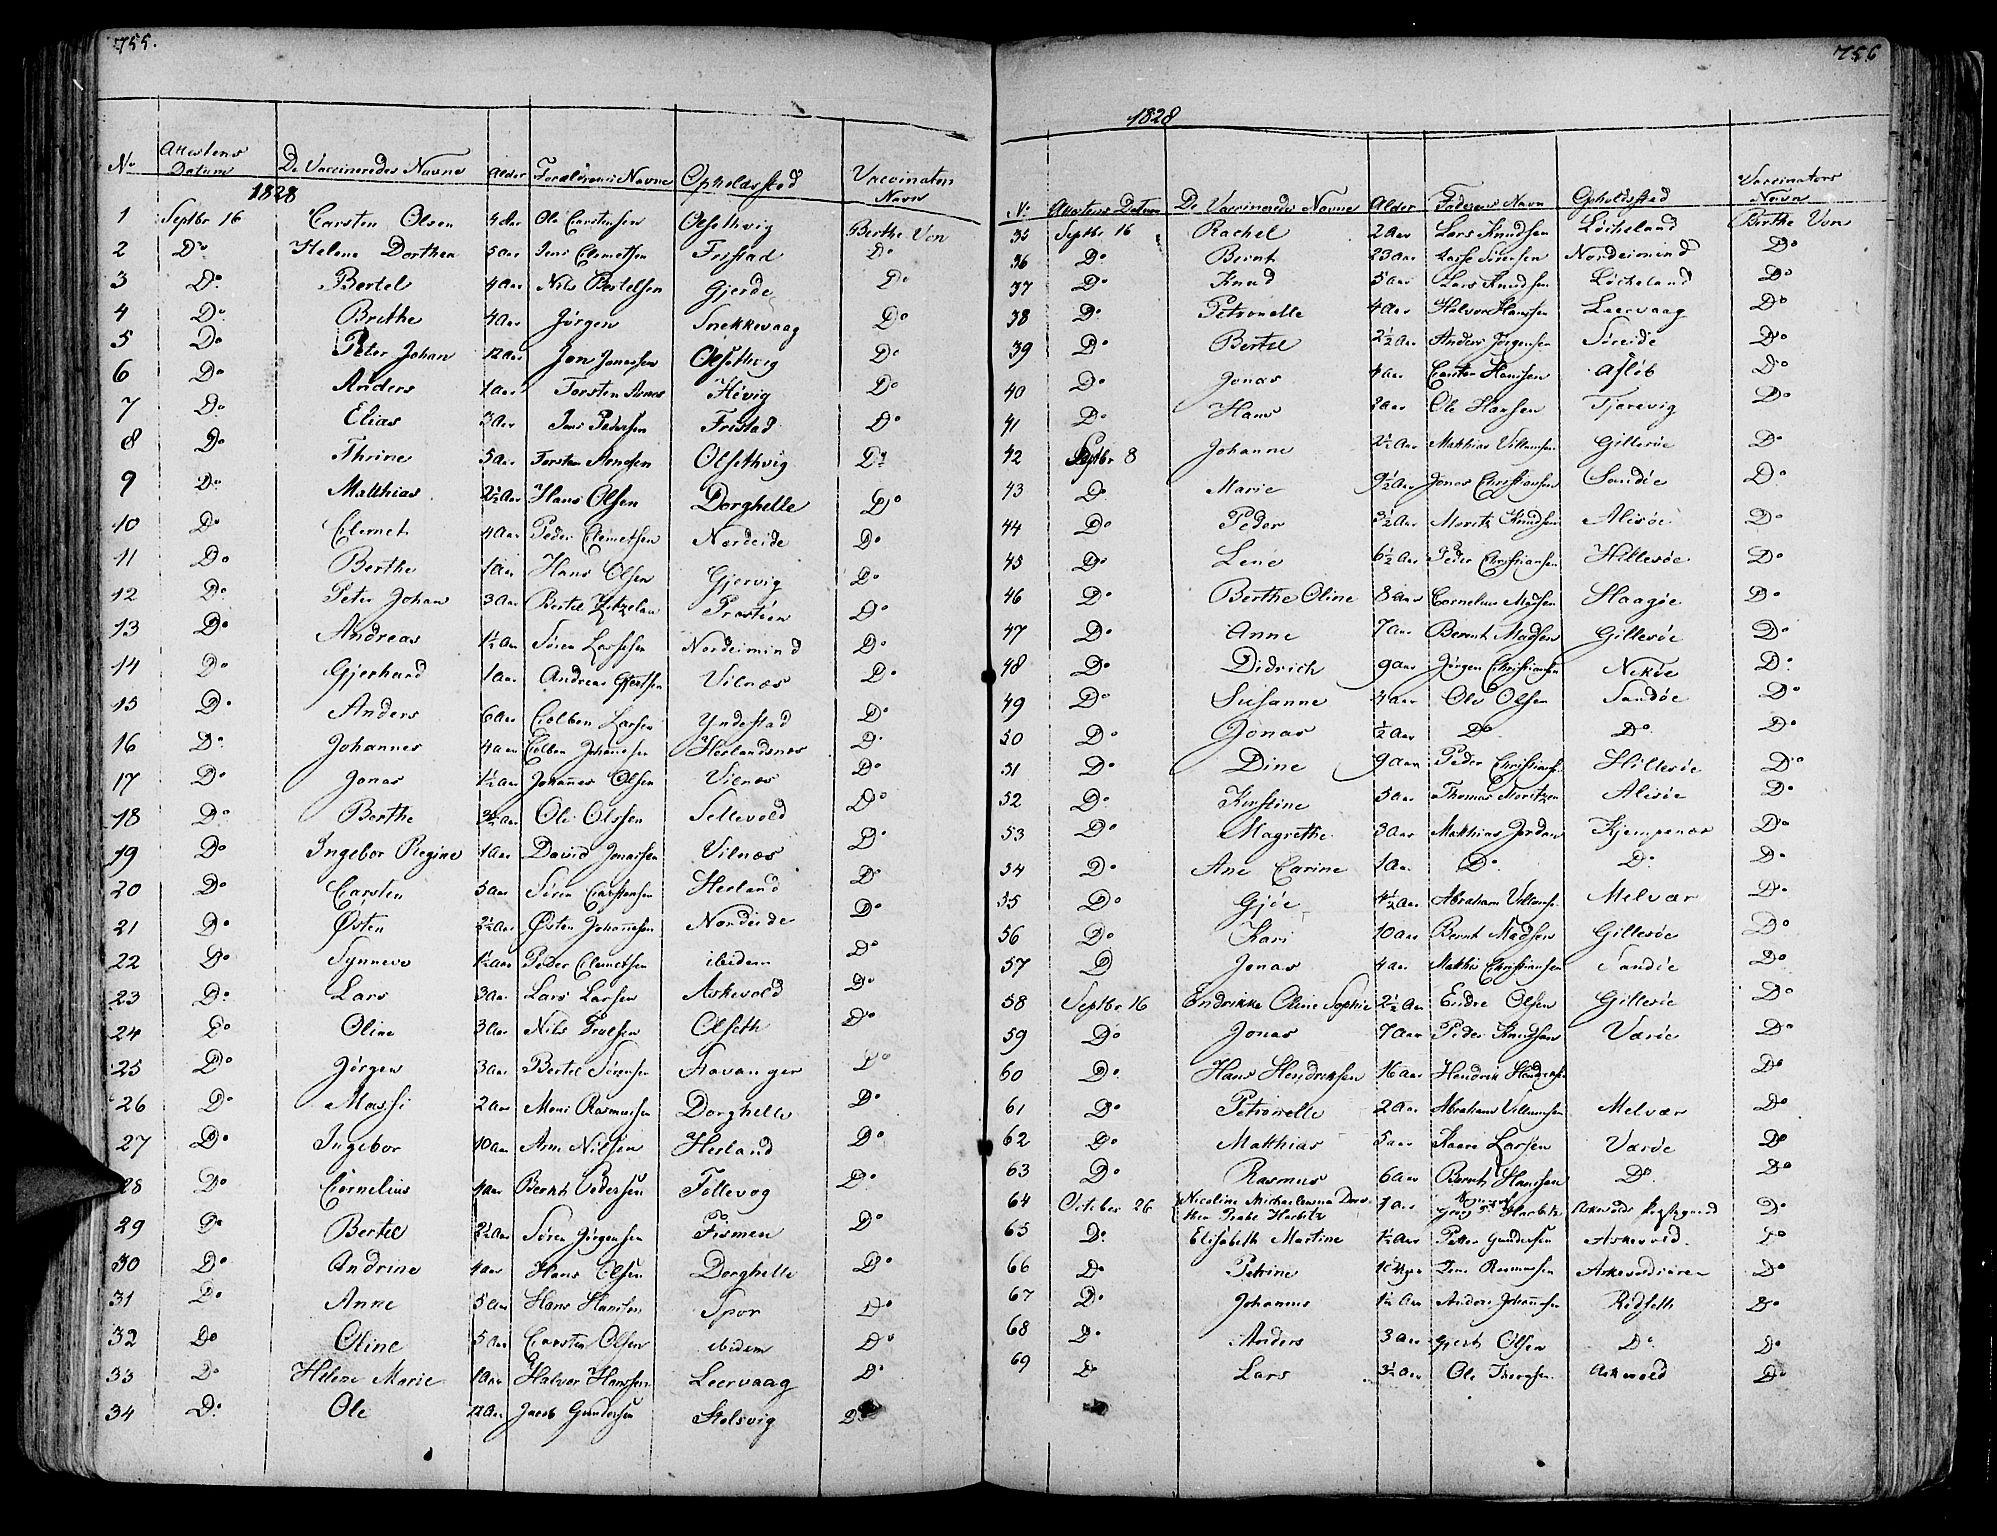 755.
No Attestens Datum De Vaccineredes Navne Alder Forældrenes Navne Opholdsstad Vaccinators Navn
1828
1 Septbr 16 Carsten Olsen 4 Aar Ole Carstensen Olsethvig Berthe Von
2 Do Helene Dorthea 5 Aar Jens Clemetsen Fristad Do
3 Do Bertel 4 Aar Nils Bertelsen Gjerde Do
4 Do Brithe 4 Aar Jörgen Snekkevaag Do
5 Do Peter Johan 12 Aar Jon Jonassen Olsethvig Do
6 Do Anders 1 Aar Torsten Hövig Do
7 Do Elias 3 Aar Jens Pedersen Fristad Do
8 Do Thrine 5 Aar Torsten Olsethvig Do
9 Do Matthias 2½ Aar Hans Olsen Dorghelle Do
10 Do Clemet 4 Aar Peder Clemetsen Nordeide Do
11 Do Berthe 1 Aar Hans Olsen Gjervig Do
12 Do Peter Johan 3 Aar Bertel Do
13 Do Andreas 1½ Aar Sören Larssen Nordeimind Do
14 Do Gjerhard 1 Aar Andreas Gjertsen Vilnæs Do
15 Do Anders 6 Aar Colben Larsen Yndestad Do
16 Do Johannes 4 Aar Colben Johannesen Herlandsnes Do
17 Do Jonas 1½ Aar Johannes Olsen Vilnæs Do
18 Do Berthe 3½ Aar Ole Olssen Sellevold Do
19 Do Ingebor Regine 1 Aar David Jonassen Vilnæs Do
20 Do Carsten 5 Aar Sören Carstensen Herland Do
21 Do Østen 2½ Aar Østen Johannesen Nordeide Do
22 Do Synneve 1½ Aar Peder Clemetsen ibidem Do
23 Do Lars 3 Aar Lars Larsen Askevold Do
24 Do Oline 3 Aar Nils Olseth Do
25 Do Jörgen 3 Aar Bertel Sörensen Stavanger Do
26 Do Massi 2 Aar Mons Rasmussen Dorghelle Do
27 Do Ingebor 10 Aar Arne Nilsen Herland Do
28 Do Cornelius 1 Aar Bernt Pedersen Follevog Do
29 Do Bertel 2½ Aar Sören Jörgensen Do
30 Do Andrine 4 Aar Hans Olsen Dorghelle Do
31 Do Anne 5 Aar Hans Hansen Spor Do
32 Do Oline 5 Aar Carsten Olsen ibidem Do
33 Do Helene Marie 1 Aar Halvor Hanssen Leervaag Do
34 Do Ole 12 Aar Jacob Gundersen Stolsvig Do
756
1828
No Attestens Datum De Vaccineredes Navne Alder Faderens Navn Opholdsstad Vaccinators Navn
35 Septbr 16 Rachel 2 Aar Lars Knudsen Löcheland Berthe Von
36 Do Bernt 23 Aar Lasse Sörensen Nordeimind Do
37 Do Knud 5 Aar Lars Knudsen Löcheland Do
38 Do Petronelle 4 Aar Halvor Hanssen Leervaag Do
39 Do Bertel 2½ Aar Anders Jörgensen Söreide Do
40 Do Jonas 4 Aar Carsten Hansen Aflöb Do
41 Do Hans 2 Aar Ole Hansen Tjorevig Do
42 Septbr 8 Johanne 2½ Aar Matthias Villumsen Gillesöe Do
43 Do Marie 9½ Aar Jonas Christiansen Sandöe Do
44 Do Peder 3½ Aar Moritz Knudsen Alisöe Do
45 Do Lene 6½ Aar Peder Christiansen Hillesöe Do
46 Do Berthe Oline 8 Aar Cornelius Madsen Haagöe Do
47 Do Anne 7 Aar Bernt Madsen Gillesöe Do
48 Do Didrich 9 Aar Jörgen Christiansen Neköe Do
49 Do Susanne 4 Aar Ole Olsen Sandöe Do
50 Do Jonas ½ Aar Do Do Do
51 Do Dine 9 Aar Peder Christians. Hillesöe Do
52 Do Kirstine 5 Aar Thomas Moritzen Alisöe Do
53 Do Magrethe 3 Aar Matthias Jordan Kjempenæs Do
54 Do Ane Carine 1 Aar Do Do Do
55 Do Gjöe 4½ Aar Abraham Villums. Melvær Do
56 Do Kari 10 Aar Bernt Madsen Gillesöe Do
57 D Jonas 4 Aar Matthis Christiansen Sandöe Do
58 Septbr 16 Endrikke Oline Sophie 2½ Aar Endre Olsen Gillesöe Do
59 Do Jonas 7 Aar Peder Knudsen Væröe Do
60 Do Hans Hendriksen 16 Aar Hendrik Hendriksen Do
61 Do Petronelle 2 Aar Abraham Villumsen Melvær Do
62 Do Matthias 5 Aar Kaare Larsen Væröe Do
63 Do Rasmus 6 Aar Bernt Hanssen Do Do
64 October 26 Nicoline Michaelemina Doro-
thea Harbitz 1 Aar Harbitz Askevolds Præstegaard Do
65 Do Elisabeth Martine 1½ Aar Petter Gundersen Askevold. Do
66 Do Petrine Jens Rasmussen Askevoldsören Do
67 Do Johannes 1½ Aar Anders Johannesen Redseth Do
68 Do Anders 3 Aar Gjert Olsen Do Do
69 D Lars 3½ Aar Ole Askevold Do